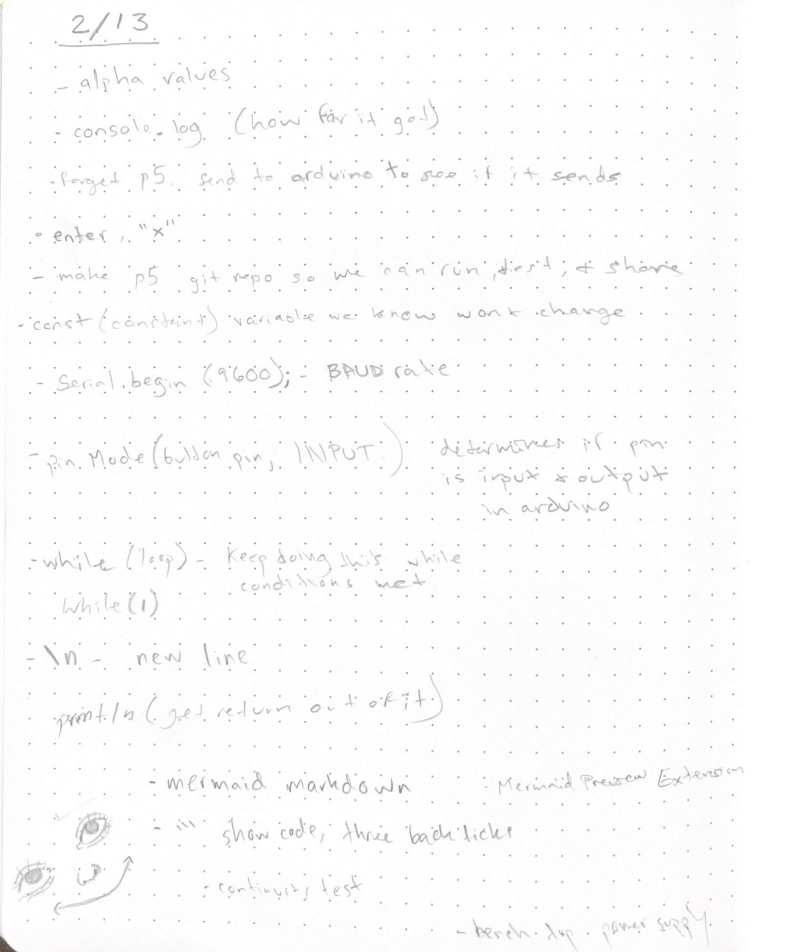 2/13
- alpha values
- console.log (how far it got)
- forget p5. send to arduino to see if it sends
- enter, "x"
- make p5 git repo so we can run, test, & share
- const (constaint) variable we know wont change
- Serial.begin (9600); - BAUD rate
- pin Mode (button pin, INPUT) determines if pin
is input & output
in arduino
- while (loop) - Keep doing this while
conditions met
While (1)
- \n - new line
print/n (get return out of it)
- mermaid markdown - Mermaid Preview Extension
- ``` show code, three back ticks
- continuity test
- bench top power supply